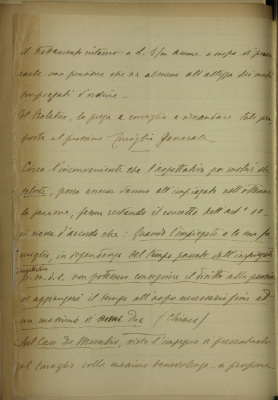 il trattamento intorno a L. 5/m annue e vospo si procu-
rarle una pensione che sia almeno all'altezza dei modesti
impiegati d'ordine.
Il Relatore, lo prega a consiglio a rimandare tale pro-
posta al prossimo Consiglio Generale.
Circa l'inconveniente che l'aspettativa per motivi di
salute, possa arrecar danno all'impiegato nell'ottenere
la pensione, fermo restando il concetto dell'art° 10.
si rese d'accordo che: Quando l'impiegato o la sua fa-
miglia, in dipendenza del tempo passato dall'impiegato
in aspettativa
p. m. d. s. non potessero conseguire il diritto alla pensione
si aggiungerà il tempo all'uopo necessario fino ad
un massimo di anni due (Chiuso)
Sul Caso De Maestri, visto l'impegno di presentarlo
al Consiglio colla massima benevolenza, si propone